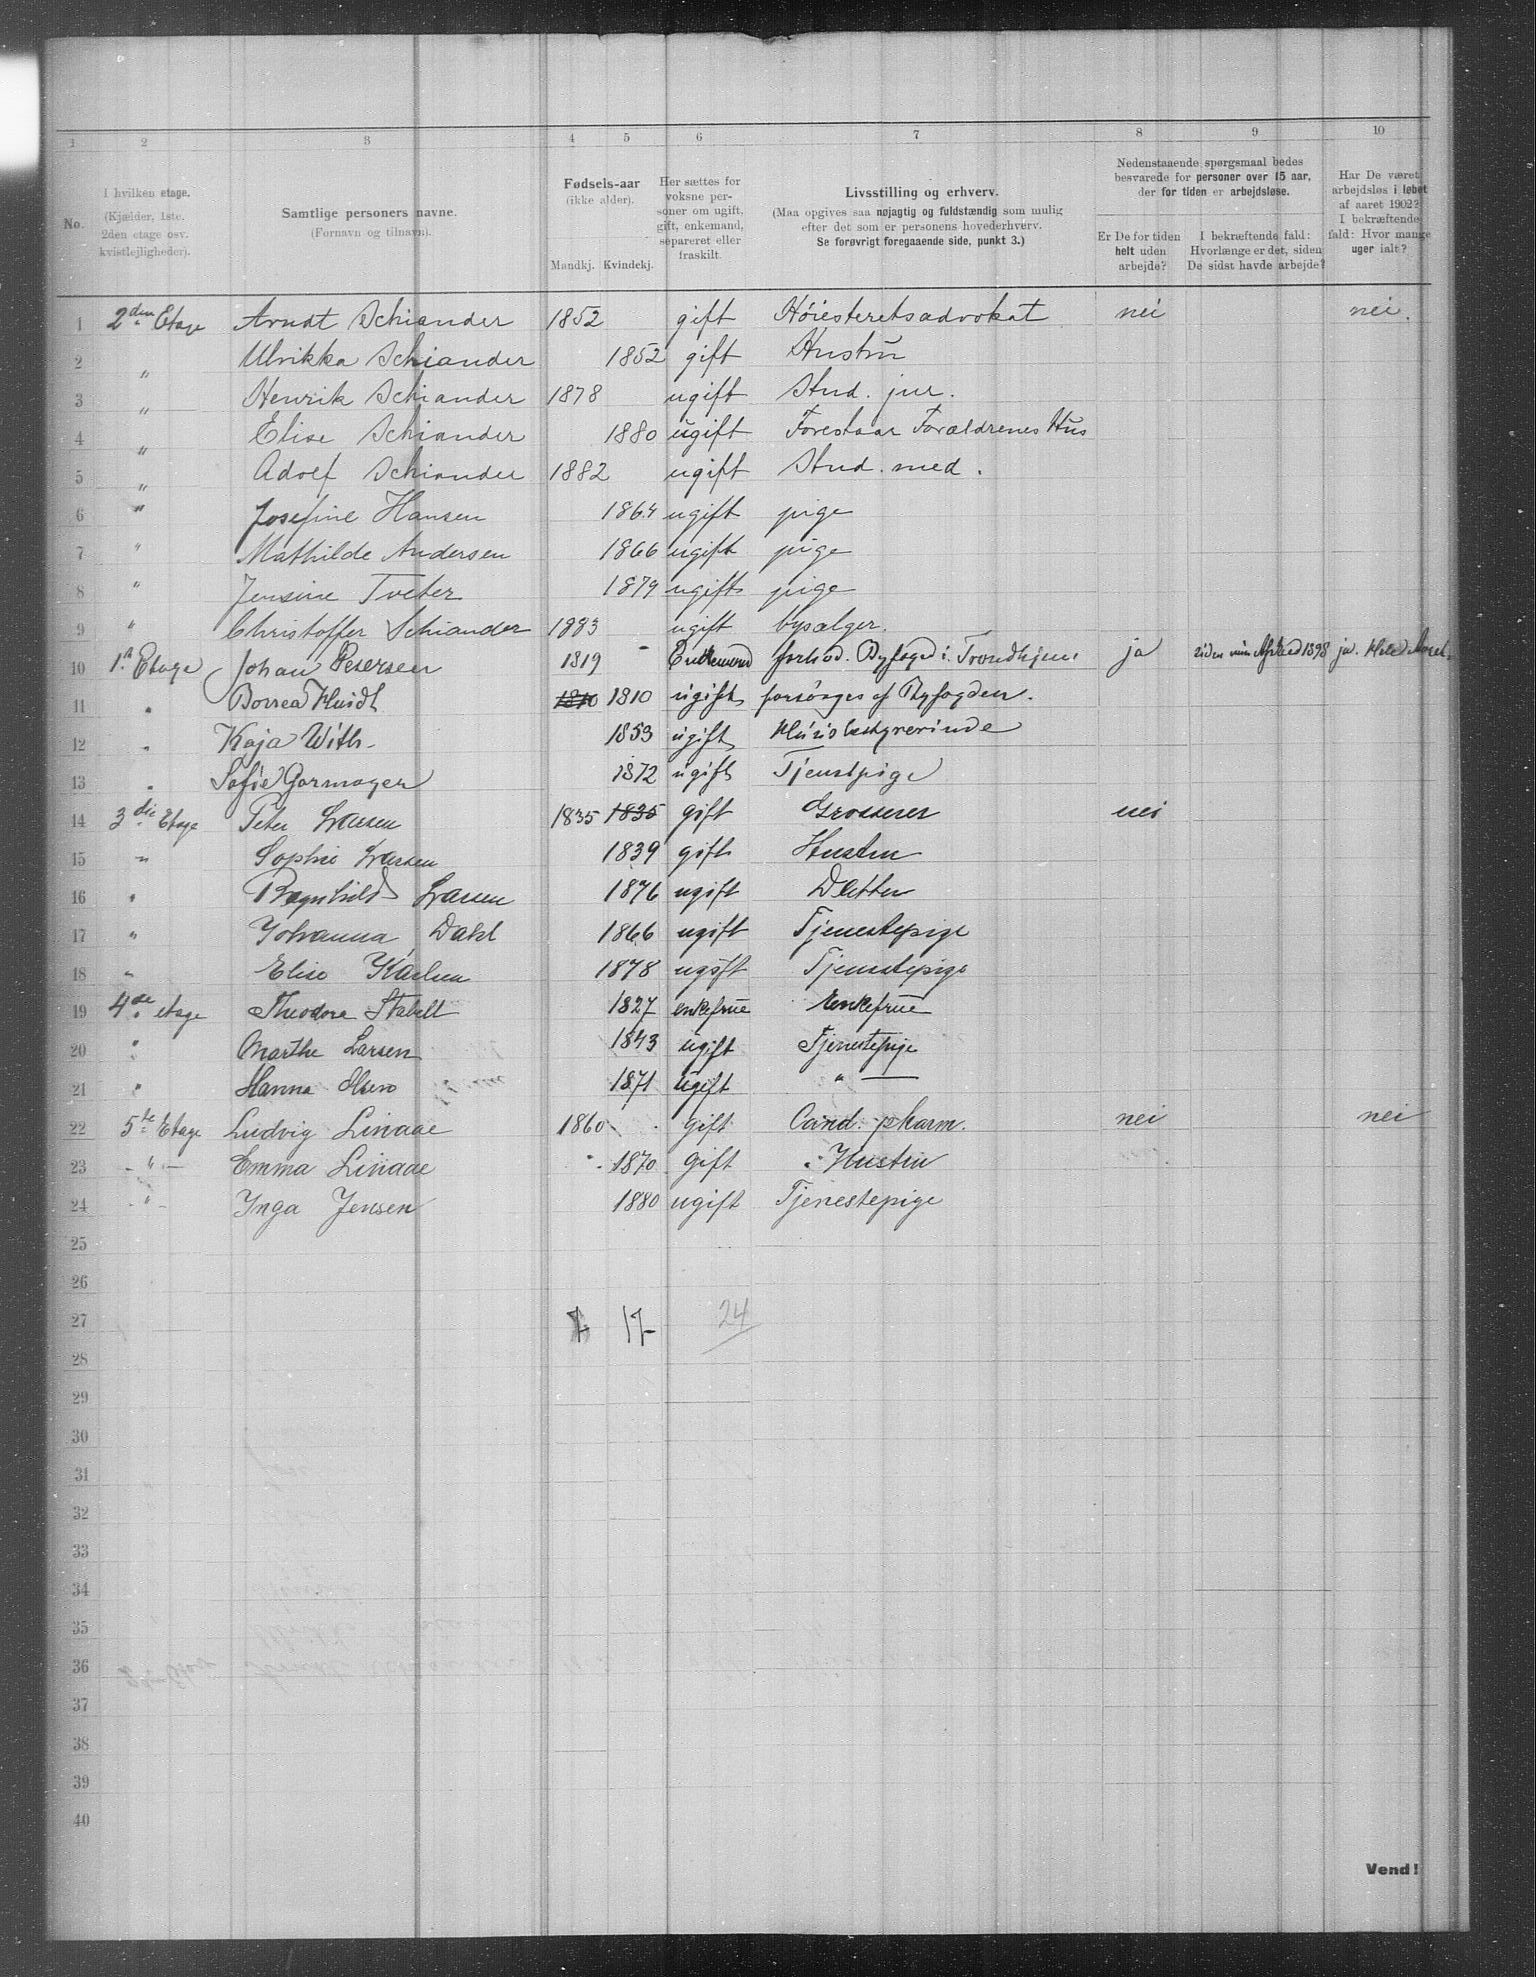 1 2 3 4 5 6 7 8 9 10
No.
I hvilken etage.
(Kjælder, 1ste.
2den etage osv.
kvistlejligheder).
Samtlige personers navne.
(Fornavn og tilnavn).
Fødsels-aar
(ikke alder).
Mandkj. Kvindekj.
Her sættes for
voksne per-
soner om ugift,
gift, enkemand,
separeret eller
fraskilt.
Livsstilling og erhverv.
(Maa opgives saa nøjagtig og fuldstændig som mulig
efter det som er personens hovederhverv.
Se forøvrigt foregaaende side, punkt 3.)
Nedenstaaende spørgsmaal bedes
besvarede for personer over 15 aar,
der for tiden er arbejdsløse.
Er De for tiden
helt uden
arbejde?
I bekræftende fald:
Hvorlænge er det, siden
De sidst havde arbejde?
Har De været
arbejdsløs i løbet
af aaret 1902?
I bekræftende
fald: Hvor mange
uger ialt?
1 2den Etage Arndt Schiander 1852 gift Höiesteretsadvokat nei nei.
2 " Ulrikka Schiander 1852 gift Hustru
3 " Henrik Schiander 1878 ugift Stud. jur.
4 " Elise Schiander 1880 ugift Forestaar Forældrenes Hus
5 " Adolf Schiander 1882 ugift Stud. med.
6 " Josefine Hansen 1864 ugift pige
7 " Mathilde Andersen 1866 ugift pige
8 " Jensine Tveter 1879 ugift pige
9 " Christoffer Schiander 1883 ugift bysælger.
10 1.ste Etage Johan Pesersen 1819 Enkemand forhv. Byfoged i Trondhjem ja siden min Afsked 1898 ja. Hele Aaret.
11 " 1810 1810 ugift forsörges af Byfogden.
12 " Kaja With. 1853 ugift Husbestyrerinde
13 " Sofie Garmager 1872 ugift Tjenstpige
14 3die Etage Peter Larsen 1835 1835 gift Grosserer nei
15 " Sophie Larsen 1839 gift Hustru
16 " Ragnhild Larsen 1876 ugift Datter
17 " Johanna Dahl 1866 ugift Tjenestepige
18 " Elise Karlsen 1878 ugift Tjenestepige
19 4de etage Theodora Stabell 1827 enkefrue Enkefrue
20 " Marthe Larsen 1843 ugift Tjenestepige
21 " Hanna Olsen 1871 ugift " —
22 5te Etage Ludvig Linaae 1860 gift Cand. pharm. nei nei
23 - " - Emma Linaae 1870 gift Hustru
24 " Inga Jensen 1880 ugift Tjenestepige
25
26
27 7 17 24
28
29
30
31
32
33
34
35
36
37
38
39
40
Vend!